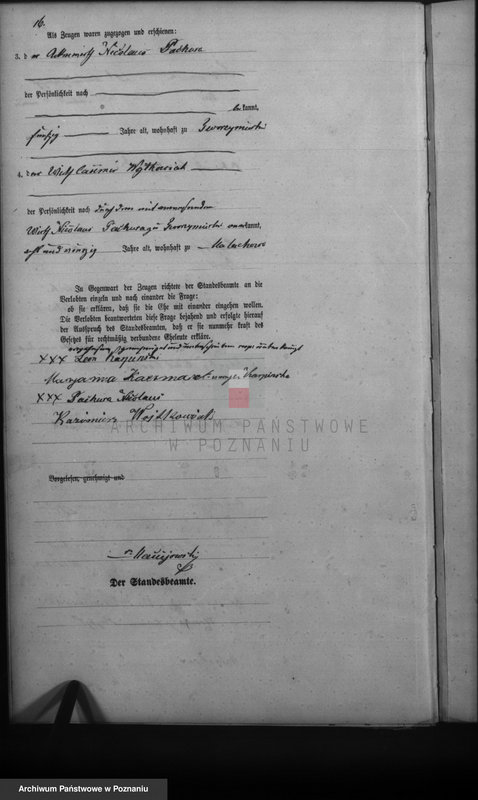 16.
Als Zeugen waren zugezogen und erschienen:
3. d er Ackerwirth Nicolaus Paskura
der Persönlichkeit nach
be kannt,
fünfzig Jahre alt, wohnhaft zu
4. d er Wirth Casimir
der Persönlichkeit nach durch den mit anwesenden
Wirth Nicolaus Paskura zu anerkannt,
acht und Jahre alt, wohnhaft zu Malachowo
In Gegenwart der Zeugen richtete der Standesbeamte an die
Verlobten einzeln und nach einander die Frage:
ob sie erklären, daß sie die Ehe mit einander eingehen wollen.
Die Verlobten beantworteten diese Frage bejahend und erfolgte hierauf
der Ausspruch des Standesbeamten, daß er sie nunmehr kraft des
Gesetzes für rechtmäßig verbundene Eheleute erkläre.
vorgelesen, genehmigt und unterschrieben
XXX Leon
Maryanna Kaczmarek
XXX Paskura Nicolaus
Kazimierz
ARCHIWUM PAŃSTWOWE
W POZNANIU
Vorgelesen, genehmigt und
v. Maciejowski
Der Standesbeamte.
Archiwum Państwowe w Poznaniu